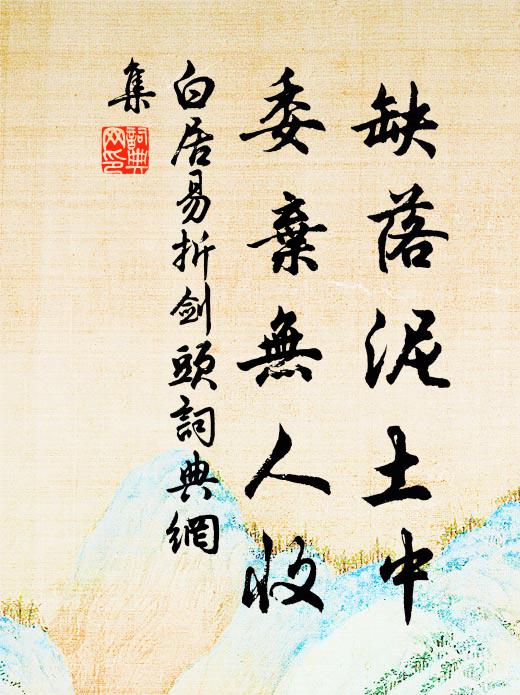 缺落泥土中
委棄無人收
白居易折劍頭詞典網
集
詞典
网印